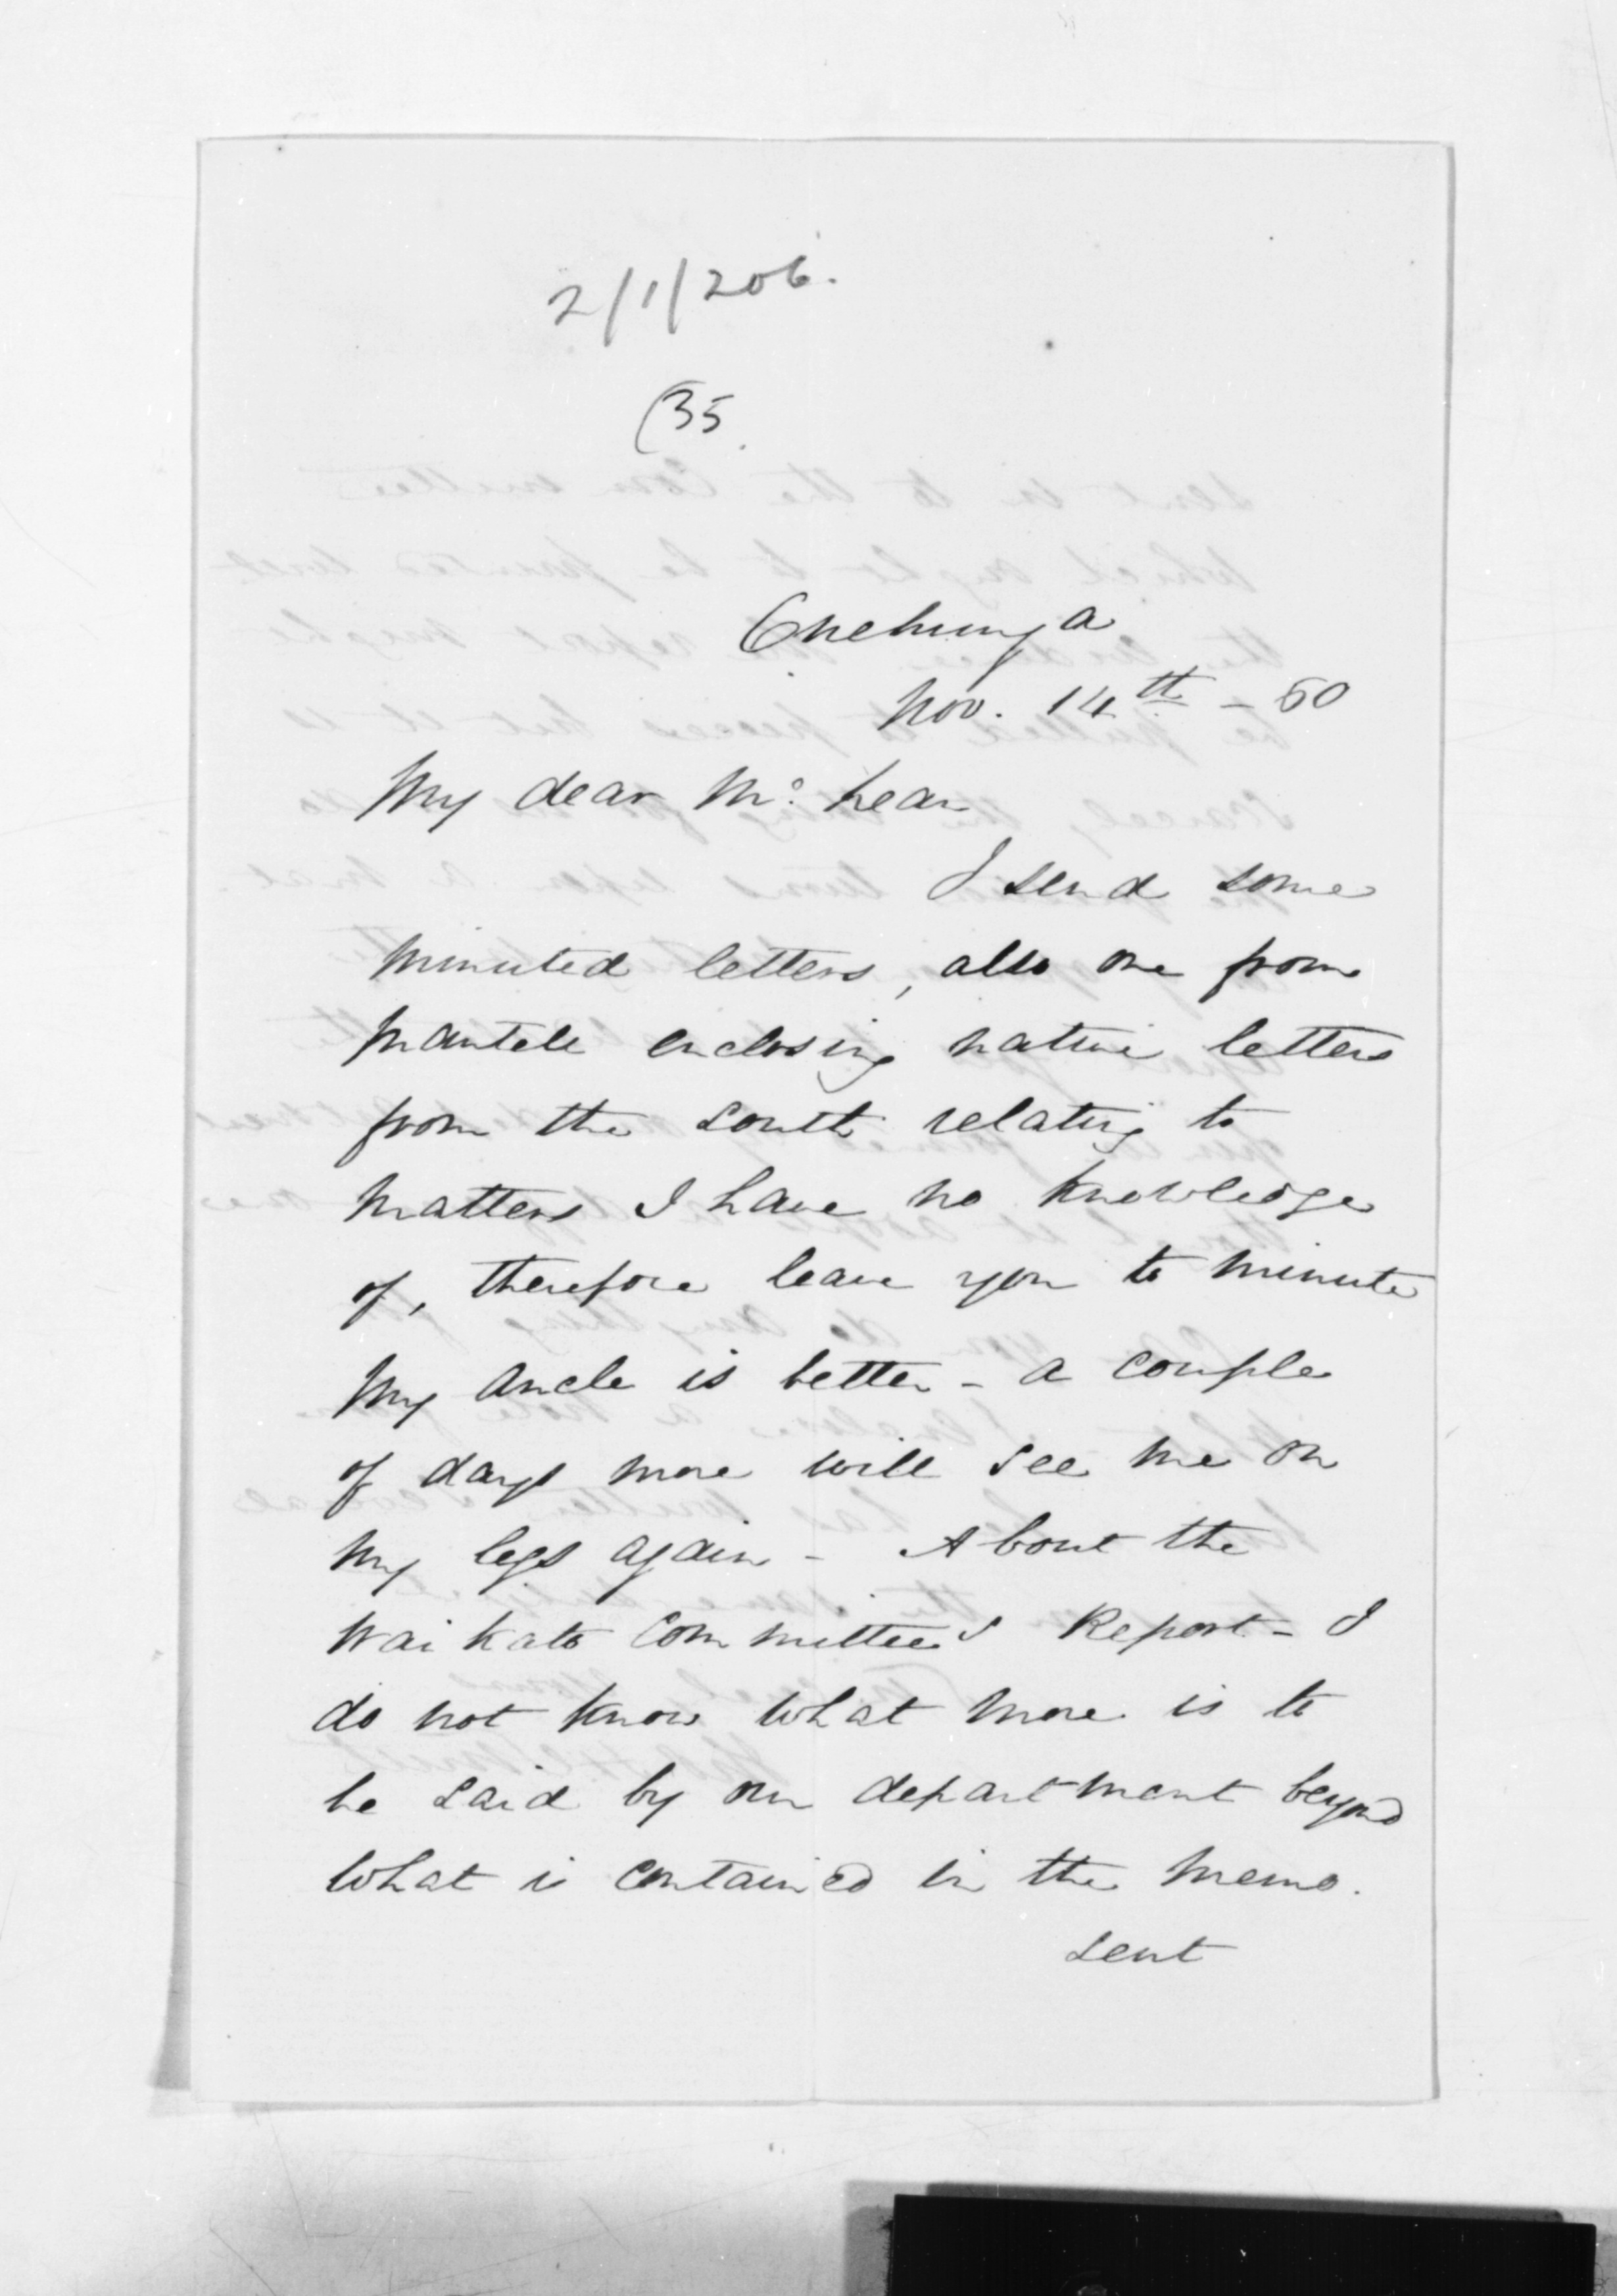 2/1/206.
(35.
Onehunga
Nov. 14th - 60
My dear Mc. Lean
I send some
minuted letters, also one from
Mantell enclosing native letters
from the South relating to
matters I have no knowledge
of, therefore leave you to minute
My ancle is better - a couple
of days more will see me on
my legs again - About the
Waikato Committee's Report - I
do not know what more is to
be said by our department beyond
what is contained in the memo.
sent